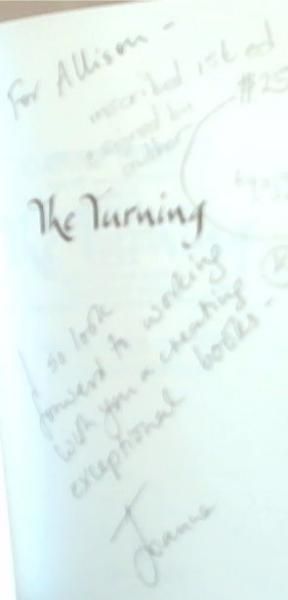 For Allison -
inscribed 1st ed
signed by
author
$25
The Turning
I so look
forward to working
with you & creating
exceptional books -
Joanna